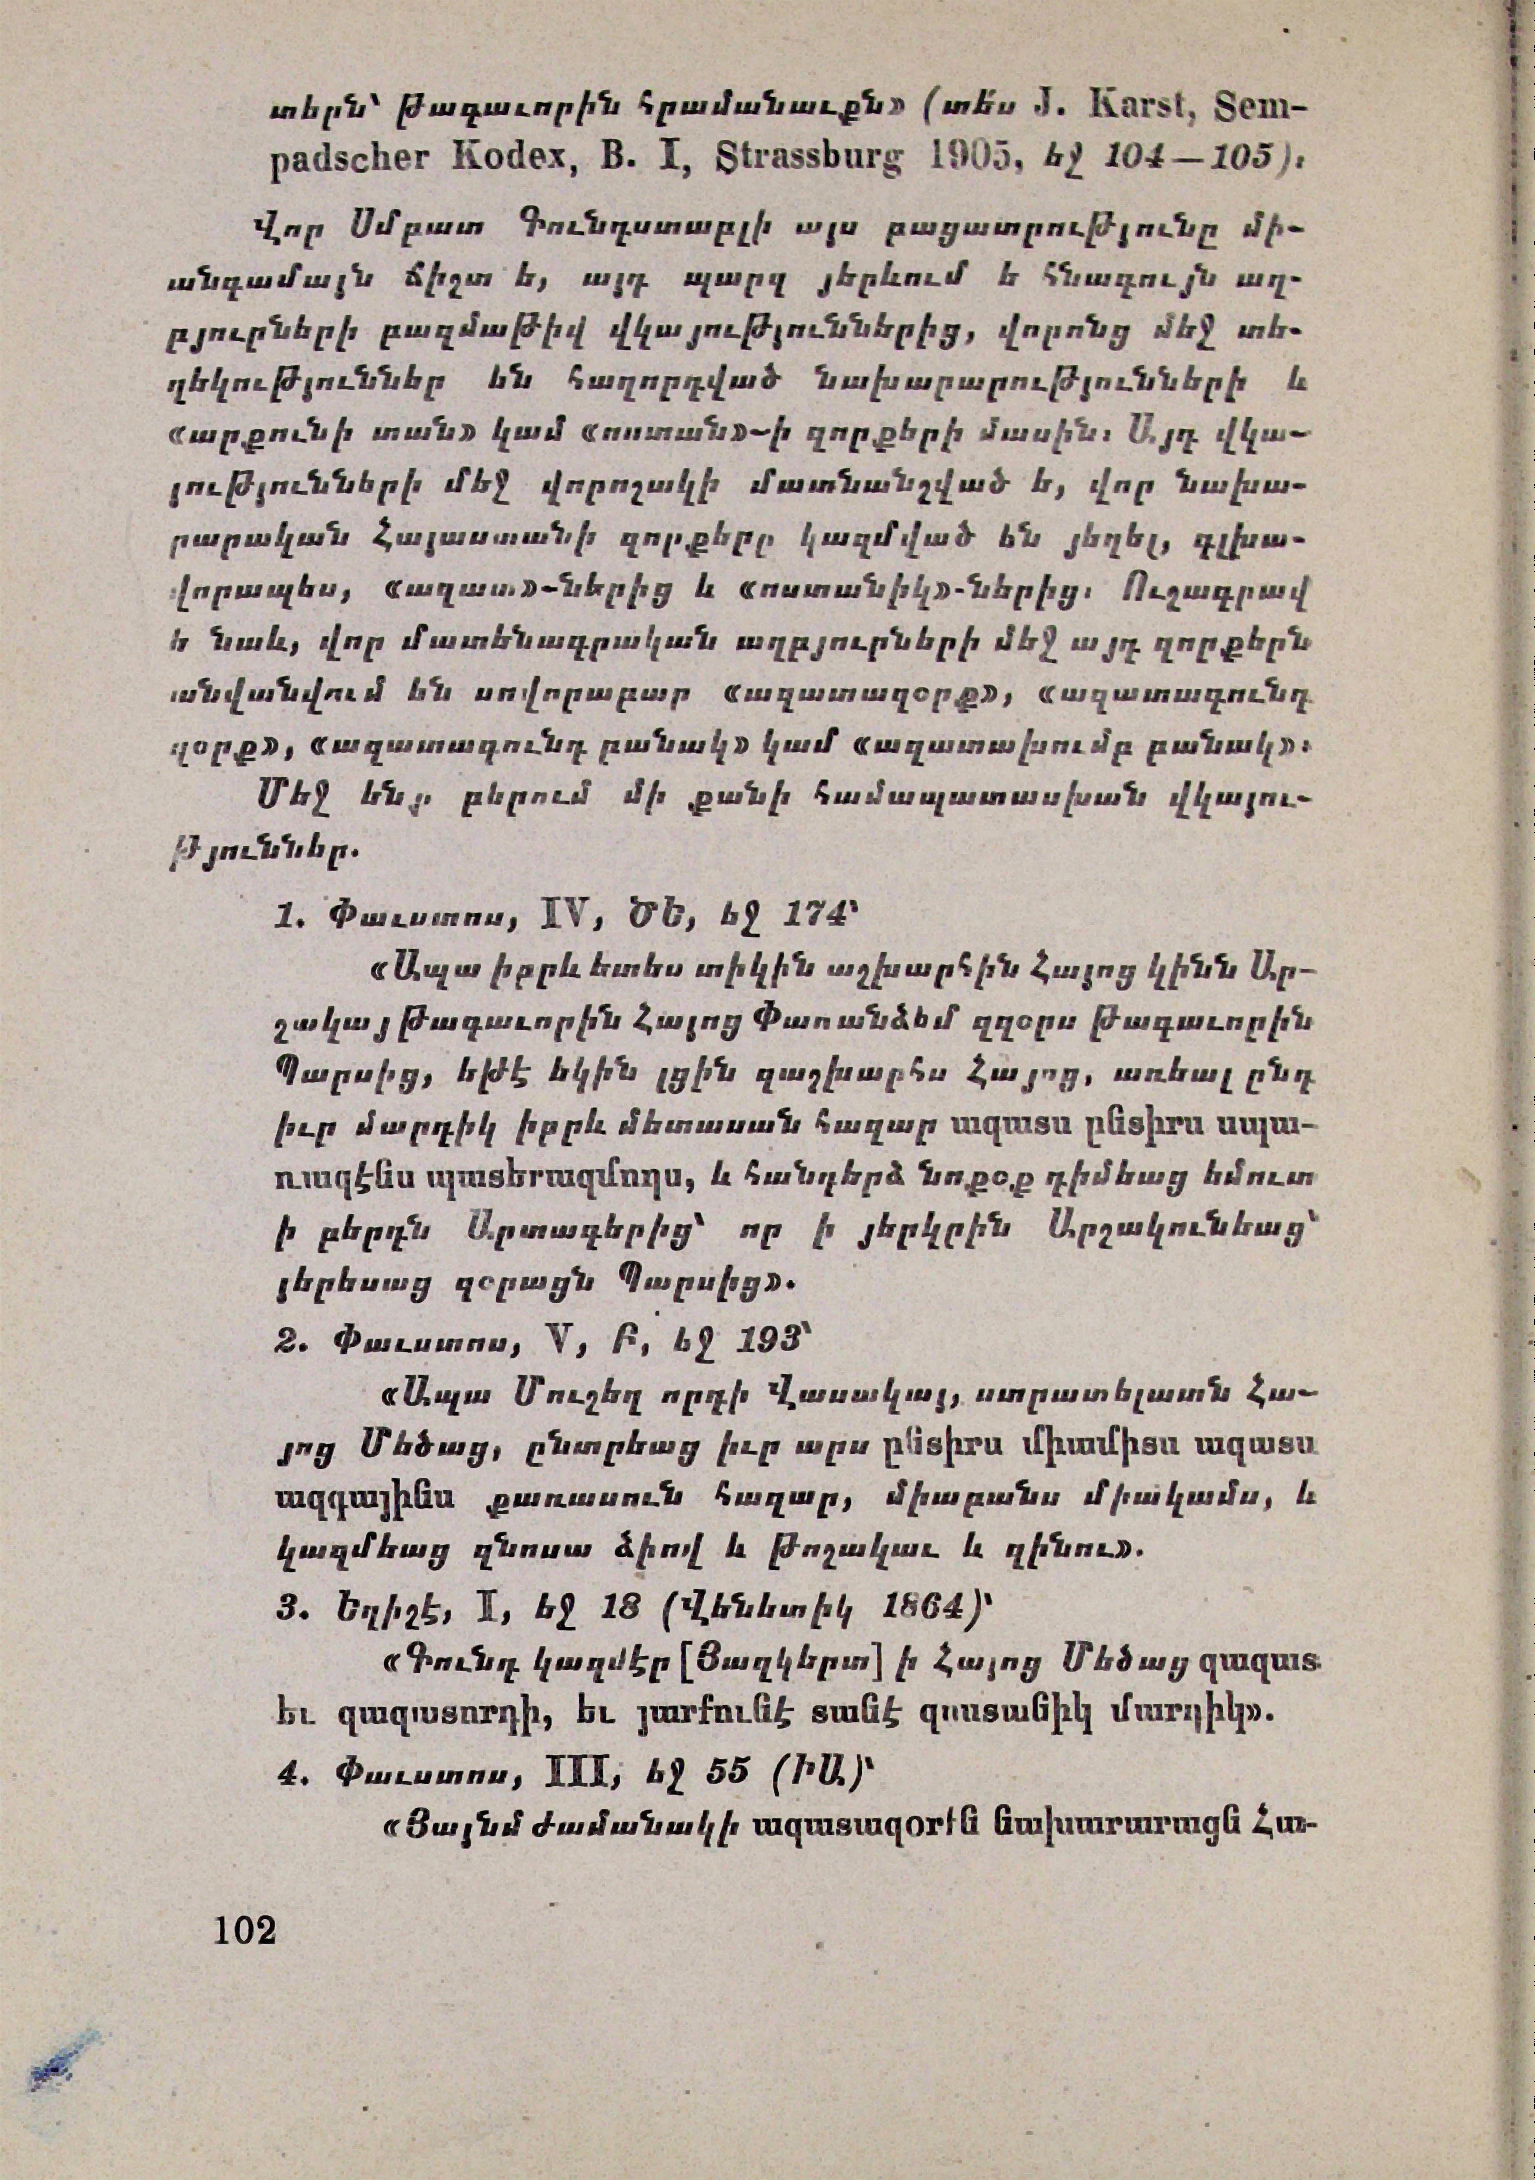 տերն՝ թագաւորին հրամանաւքն» (տե՛ս J. Karst, Sem-
padscher Kodex, B. I, Strassburg 1905, եջ 104—105)։
Վոր Սմբատ Գունդստաբլի այս բացատրությունը մի-
անգամայն ճիշտ ե, այդ պարզ յերևում ե հնագույն աղ-
բյուրների բազմաթիվ վկայություններից, վորոնց մեջ տե-
ղեկություններ են հաղորդված նախարարությունների և
«արքունի տան» կամ «ոստան»-ի զորքերի մասին։ Այդ վկա-
յությունների մեջ վորոշակի մատնանշված ե, վոր նախա-
րարական Հայաստանի զորքերը կազմված են յեղել, գլխա-
վորապես, «ազատ»-ներից և «ոստանիկ»-ներից։ Ուշագրավ
ե նաև, վոր մատենագրական աղբյուրների մեջ այդ զորքերն
անվանվում են սովորաբար «ազատազօրք», «ազատագունդ
զօրք», «ազատագունդ բանակ» կամ «ազատախումբ բանակ»։
Մեջ ենք բերում մի քանի համապատասխան վկայու-
թյուններ.
1. Փաւստոս, IV, ԾԵ, եջ 174՝
«Ապա իբրև ետես տիկին աշխարհին Հայոց կինն Ար-
շակայ թագաւորին Հայոց Փառանձեմ զզօրս թագաւորին
Պարսից, եթէ եկին լցին զաշխարհս Հայոց, առեալ ընդ
իւր մարդիկ իբրև մետասան հազար ազատս ընտիրս սպա-
ռազէնս պատերազմողս, և հանդերձ նոքօք դիմեաց եմուտ
ի բերդն Արտագերից՝ որ ի յերկրին Արշակունեաց՝
յերեսաց զօրացն Պարսից».
2. Փաւստոս, V, Բ, եջ 193՝
«Ապա Մուշեղ որդի Վասակայ, ստրատելատն Հա-
յոց Մեծաց, ընտրեաց իւր արս ընտիրս միամիտս ազատս
ազգայինս քառասուն հազար, միաբանս միակամս, և
կազմեաց զնոսա ձիով և թոշակաւ և զինու».
3. Եղիշէ, I, եջ 18 (Վենետիկ 1864)՝
«Գունդ կազմէր [Յազկերտ] ի Հայոց Մեծաց զազատ
եւ զազատորդի, եւ յարքունէ տանէ զոստանիկ մարդիկ».
4. Փաւստոս, III, եջ 55 (ԻԱ)՝
«Յայնմ ժամանակի ազատազօրքն նախարարացն Հա-
102